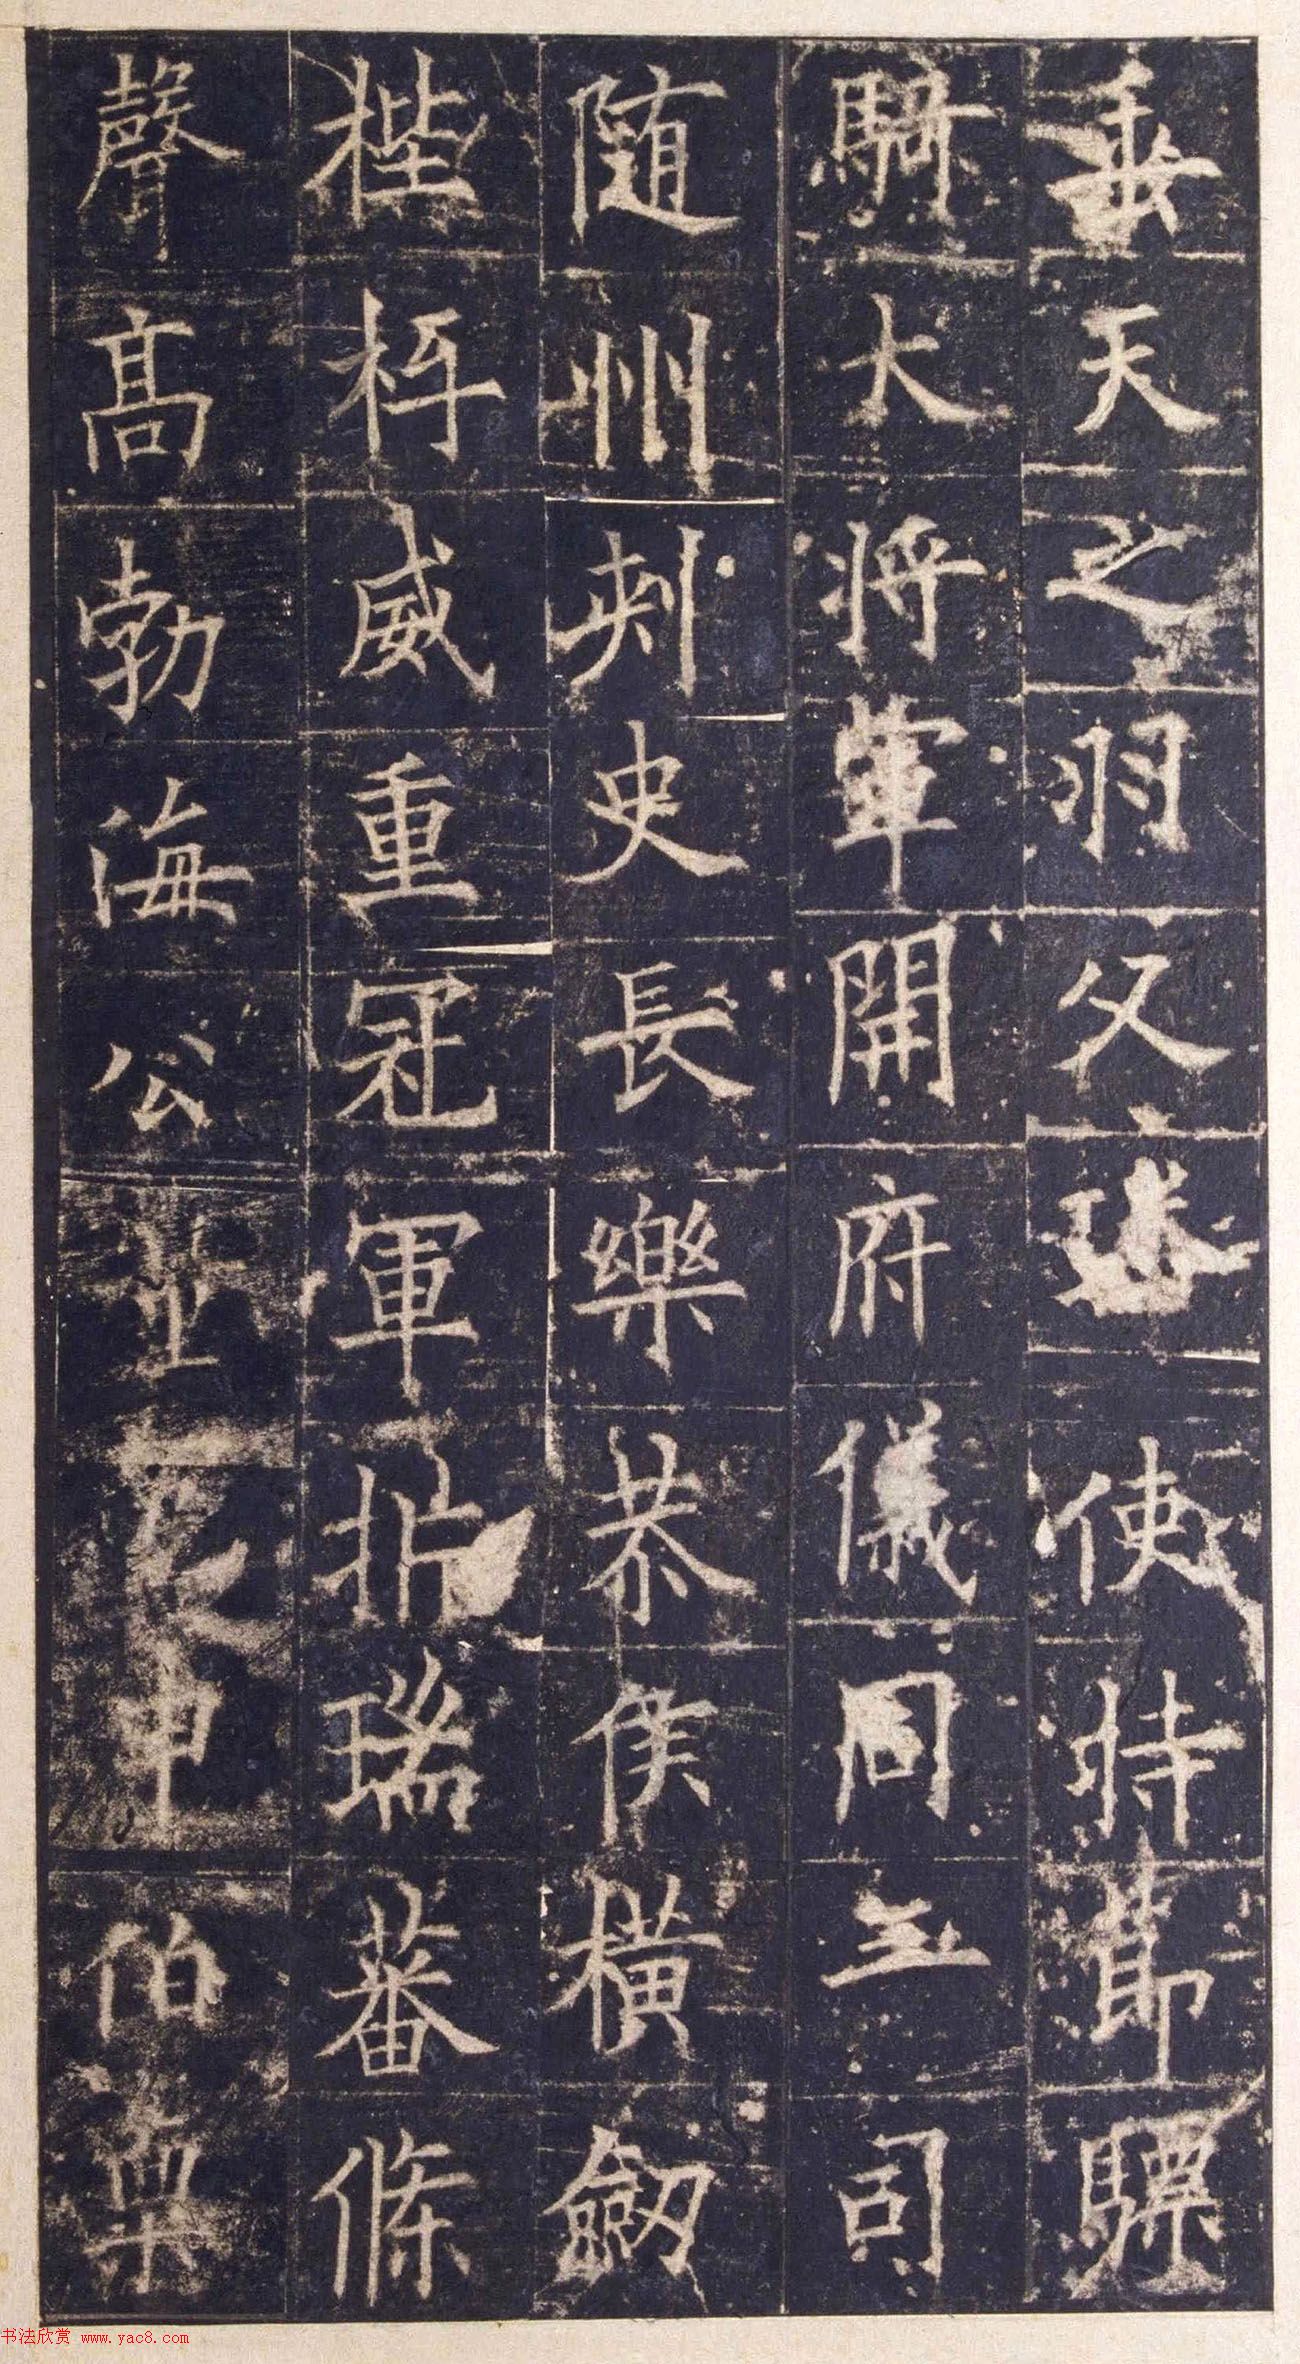 垂天之羽父璠使持節驃
騎大將軍開府儀同三司
随州刺史長樂恭侯橫劒
梐枑威重冠軍析瑞蕃條
聲高勃海公申伯稟
书法欣赏 www.yac8.com